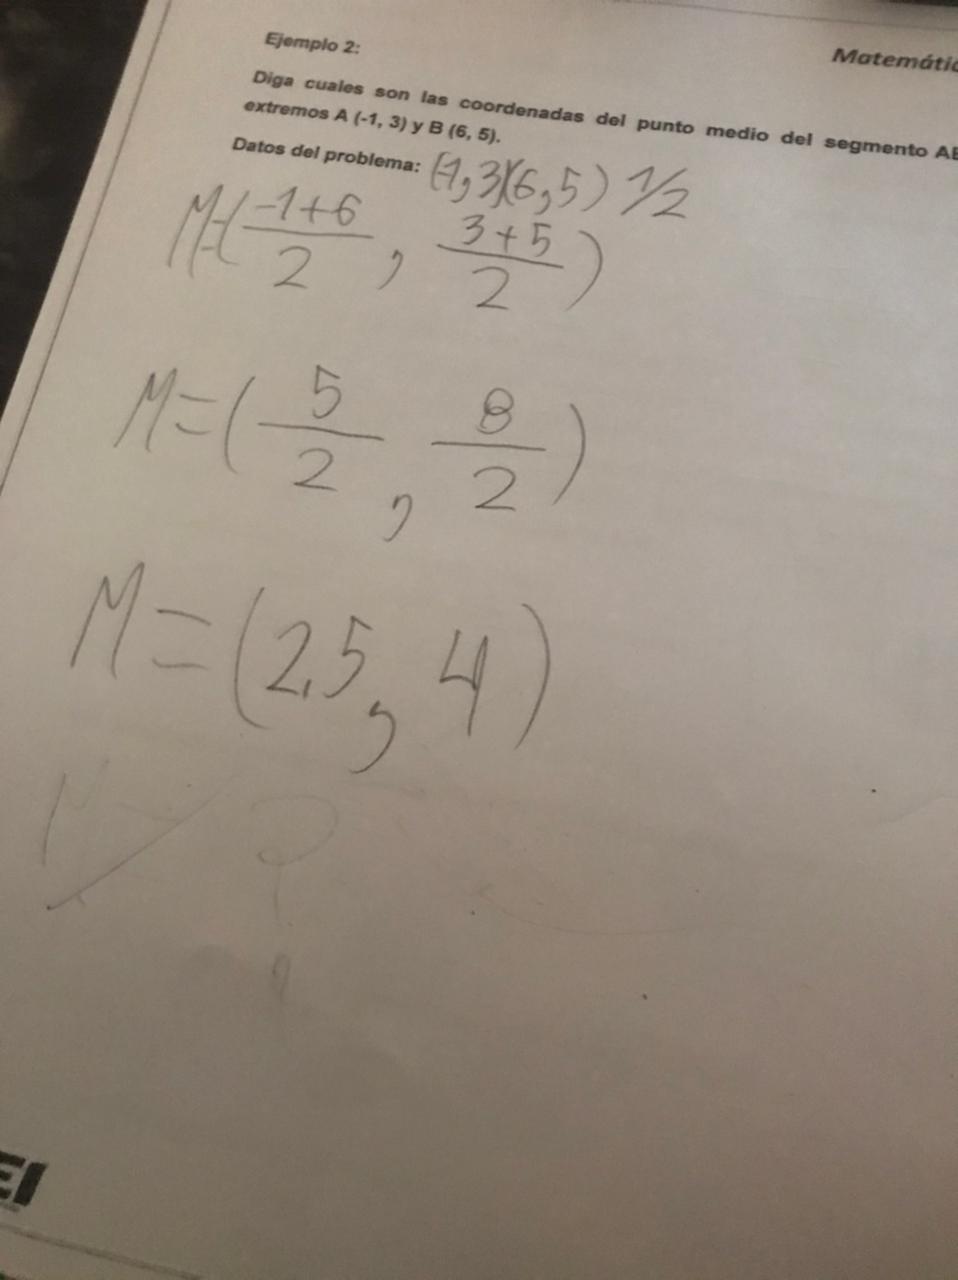 Ejemplo 2:
Matemátic
Diga cuales son las coordenadas del punto medio del segmento AB
extremos A (-1, 3) y B (6, 5).
Datos del problema: (-1, 3)(6, 5) 1/2
M=(-1+6/2, 3+5/2)
M=(5/2, 8/2)
M=(2.5, 4)
EI